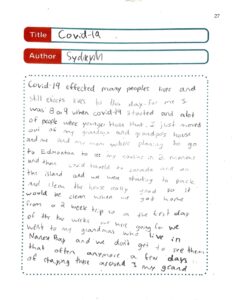 27
Title Covid-19
Author Sydney M
Covid-19 effected many peoples lives and
still effects lives to this day. for me I
was 8 or 9 when covid-19 started and alot
of people were younger than that. I just moved
out of my grandma and grandpa's house
and me and my mom were planing to go
to Edmonton to see my cousins in 2 months
and then covid to canada and on
the island and we were starting to pack
and clean the house really good so it
would be clean when we got home
from a 2 week trip so on the first day
of the two weeks we were going to we
went to my grandmas who live in
Nanoose Bay and we don't get to see them
that often anymore a few days
of staying there around 3 my grand